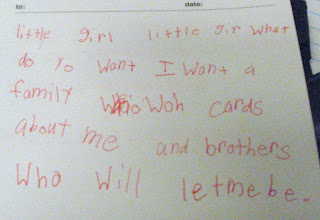 to: date:
little girl little gir what
do yo want I want a
family Woh cards
about me and brothers
Who Will letmebe.